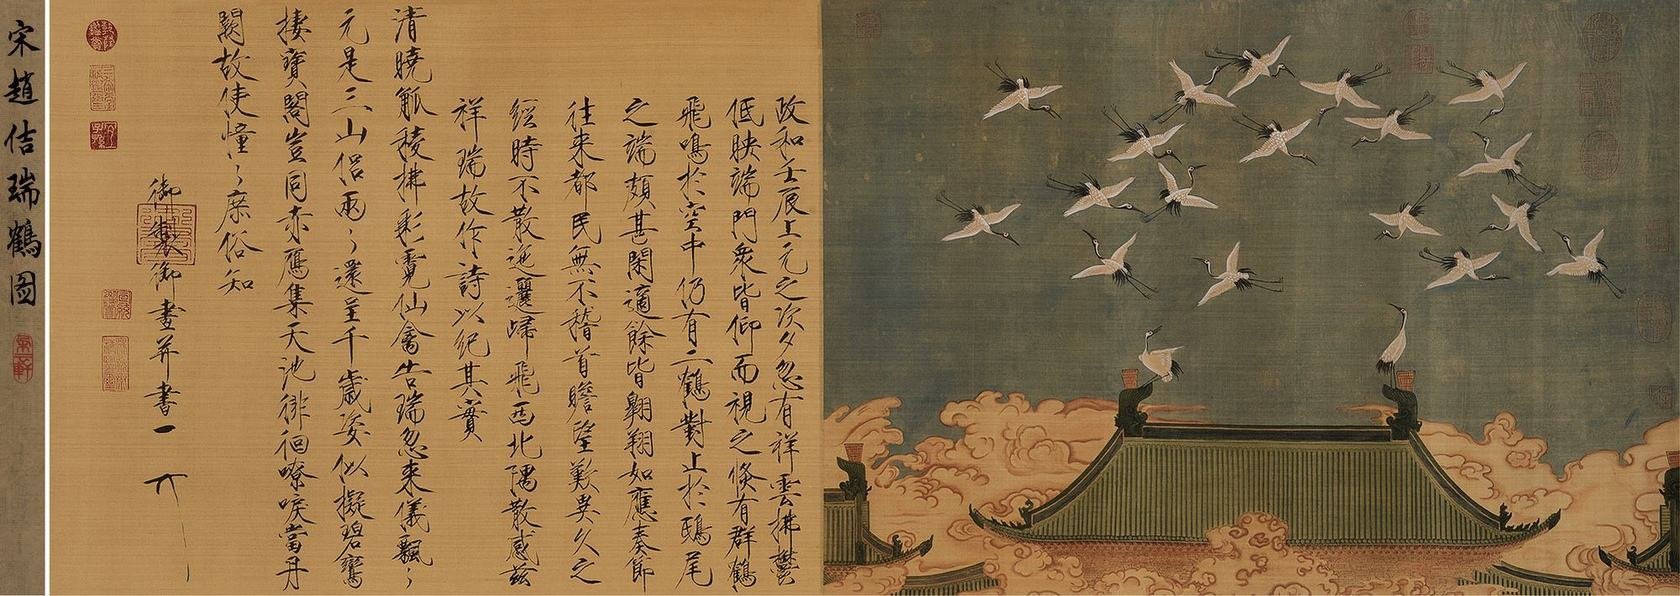 政和壬辰上元之次夕忽有祥雲拂鬱
低映端門眾皆仰而視之倏有群鶴
飛鳴於空中仍有二鶴對止於鴟尾
之端頗甚閑適餘皆翱翔如應奏節
往来都民無不稽首瞻望歎異久之
經時不散迤邐歸飛西北隅散感茲
祥瑞故作詩以紀其實
清曉觚稜拂彩霓仙禽告瑞忽来儀飄〻
元是三山侶兩〻還呈千歲姿似擬碧鸞
棲寶閣豈同赤鴈集天池徘徊嘹唳當丹
闕故使憧〻庶俗知
御製御畫并書
宋趙佶瑞鶴图